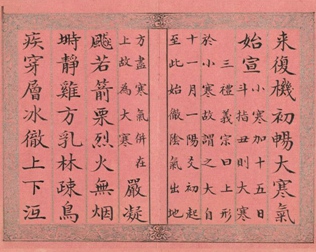 來復機初暢大寒氣
始宣
小寒加十五日
斗指丑則大寒
三禮義宗曰上形
於小寒故謂之大自
十一月一陽爻初起
至此始徹陰氣出地
方盡寒氣併在
上故為大寒
嚴凝
飈若箭栗烈火無烟
塒靜雞方乳林疎鳥
疾穿層冰徹上下沍